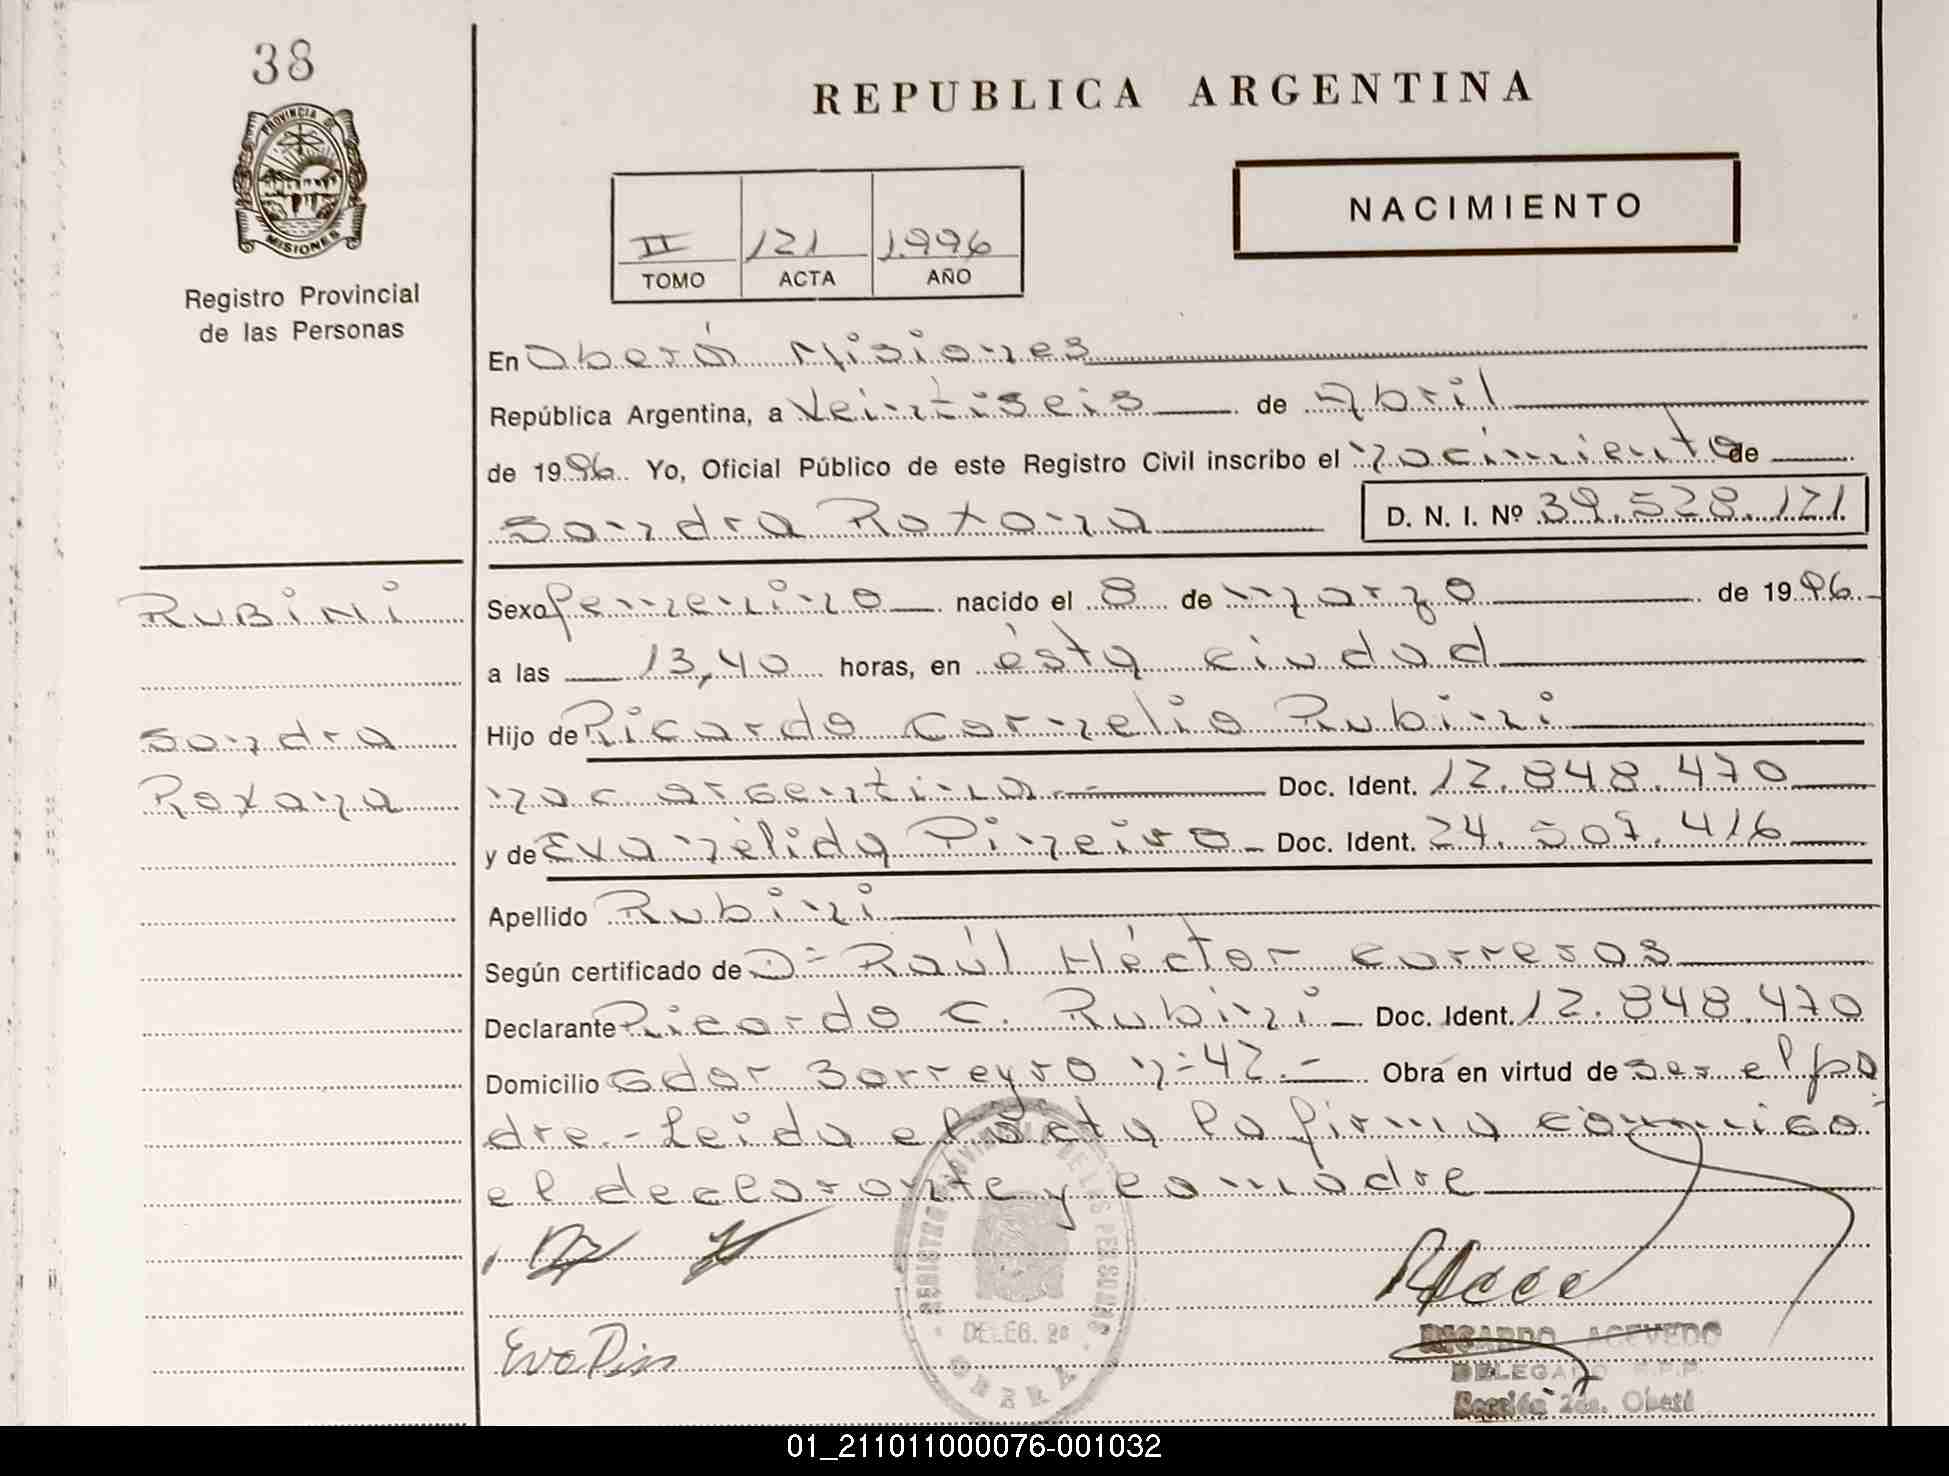 38
REPUBLICA ARGENTINA
PROVINCIA DE
MISIONES
Registro Provincial
de las Personas
II 121 1.996
TOMO ACTA AÑO
NACIMIENTO
En Oberá Misiones
República Argentina, a Veintiseis de Abril
de 1996. Yo, Oficial Público de este Registro Civil inscribo el nacimiento de
Sandra Roxana D. N. I. Nº 39.528.121
RUBINI
Sandra
Roxana
Sexo femenino nacido el 8 de marzo de 1996
a las 13,40 horas, en ésta ciudad
Hijo de Ricardo Cornelio Rubini
nac argentina.- Doc. Ident. 12.848.470
y de Evanélida Pineiro Doc. Ident. 24.507.416
Apellido Rubini
Según certificado de Dº Raúl Héctor
Declarante Ricardo C. Rubini Doc. Ident. 12.848.470
Domicilio Barreyro nº 42.- Obra en virtud de ser el pa
dre.- Leida el acta la firma conmigo
el declarante y la madre
REGISTRO PROVINCIAL DE LAS PERSONAS
DELEG. 2a
OBERA
Eva Pin
RICARDO ACEVEDO
DELEGADO R.P.P.
Sección 2da. Oberá
01_211011000076-001032